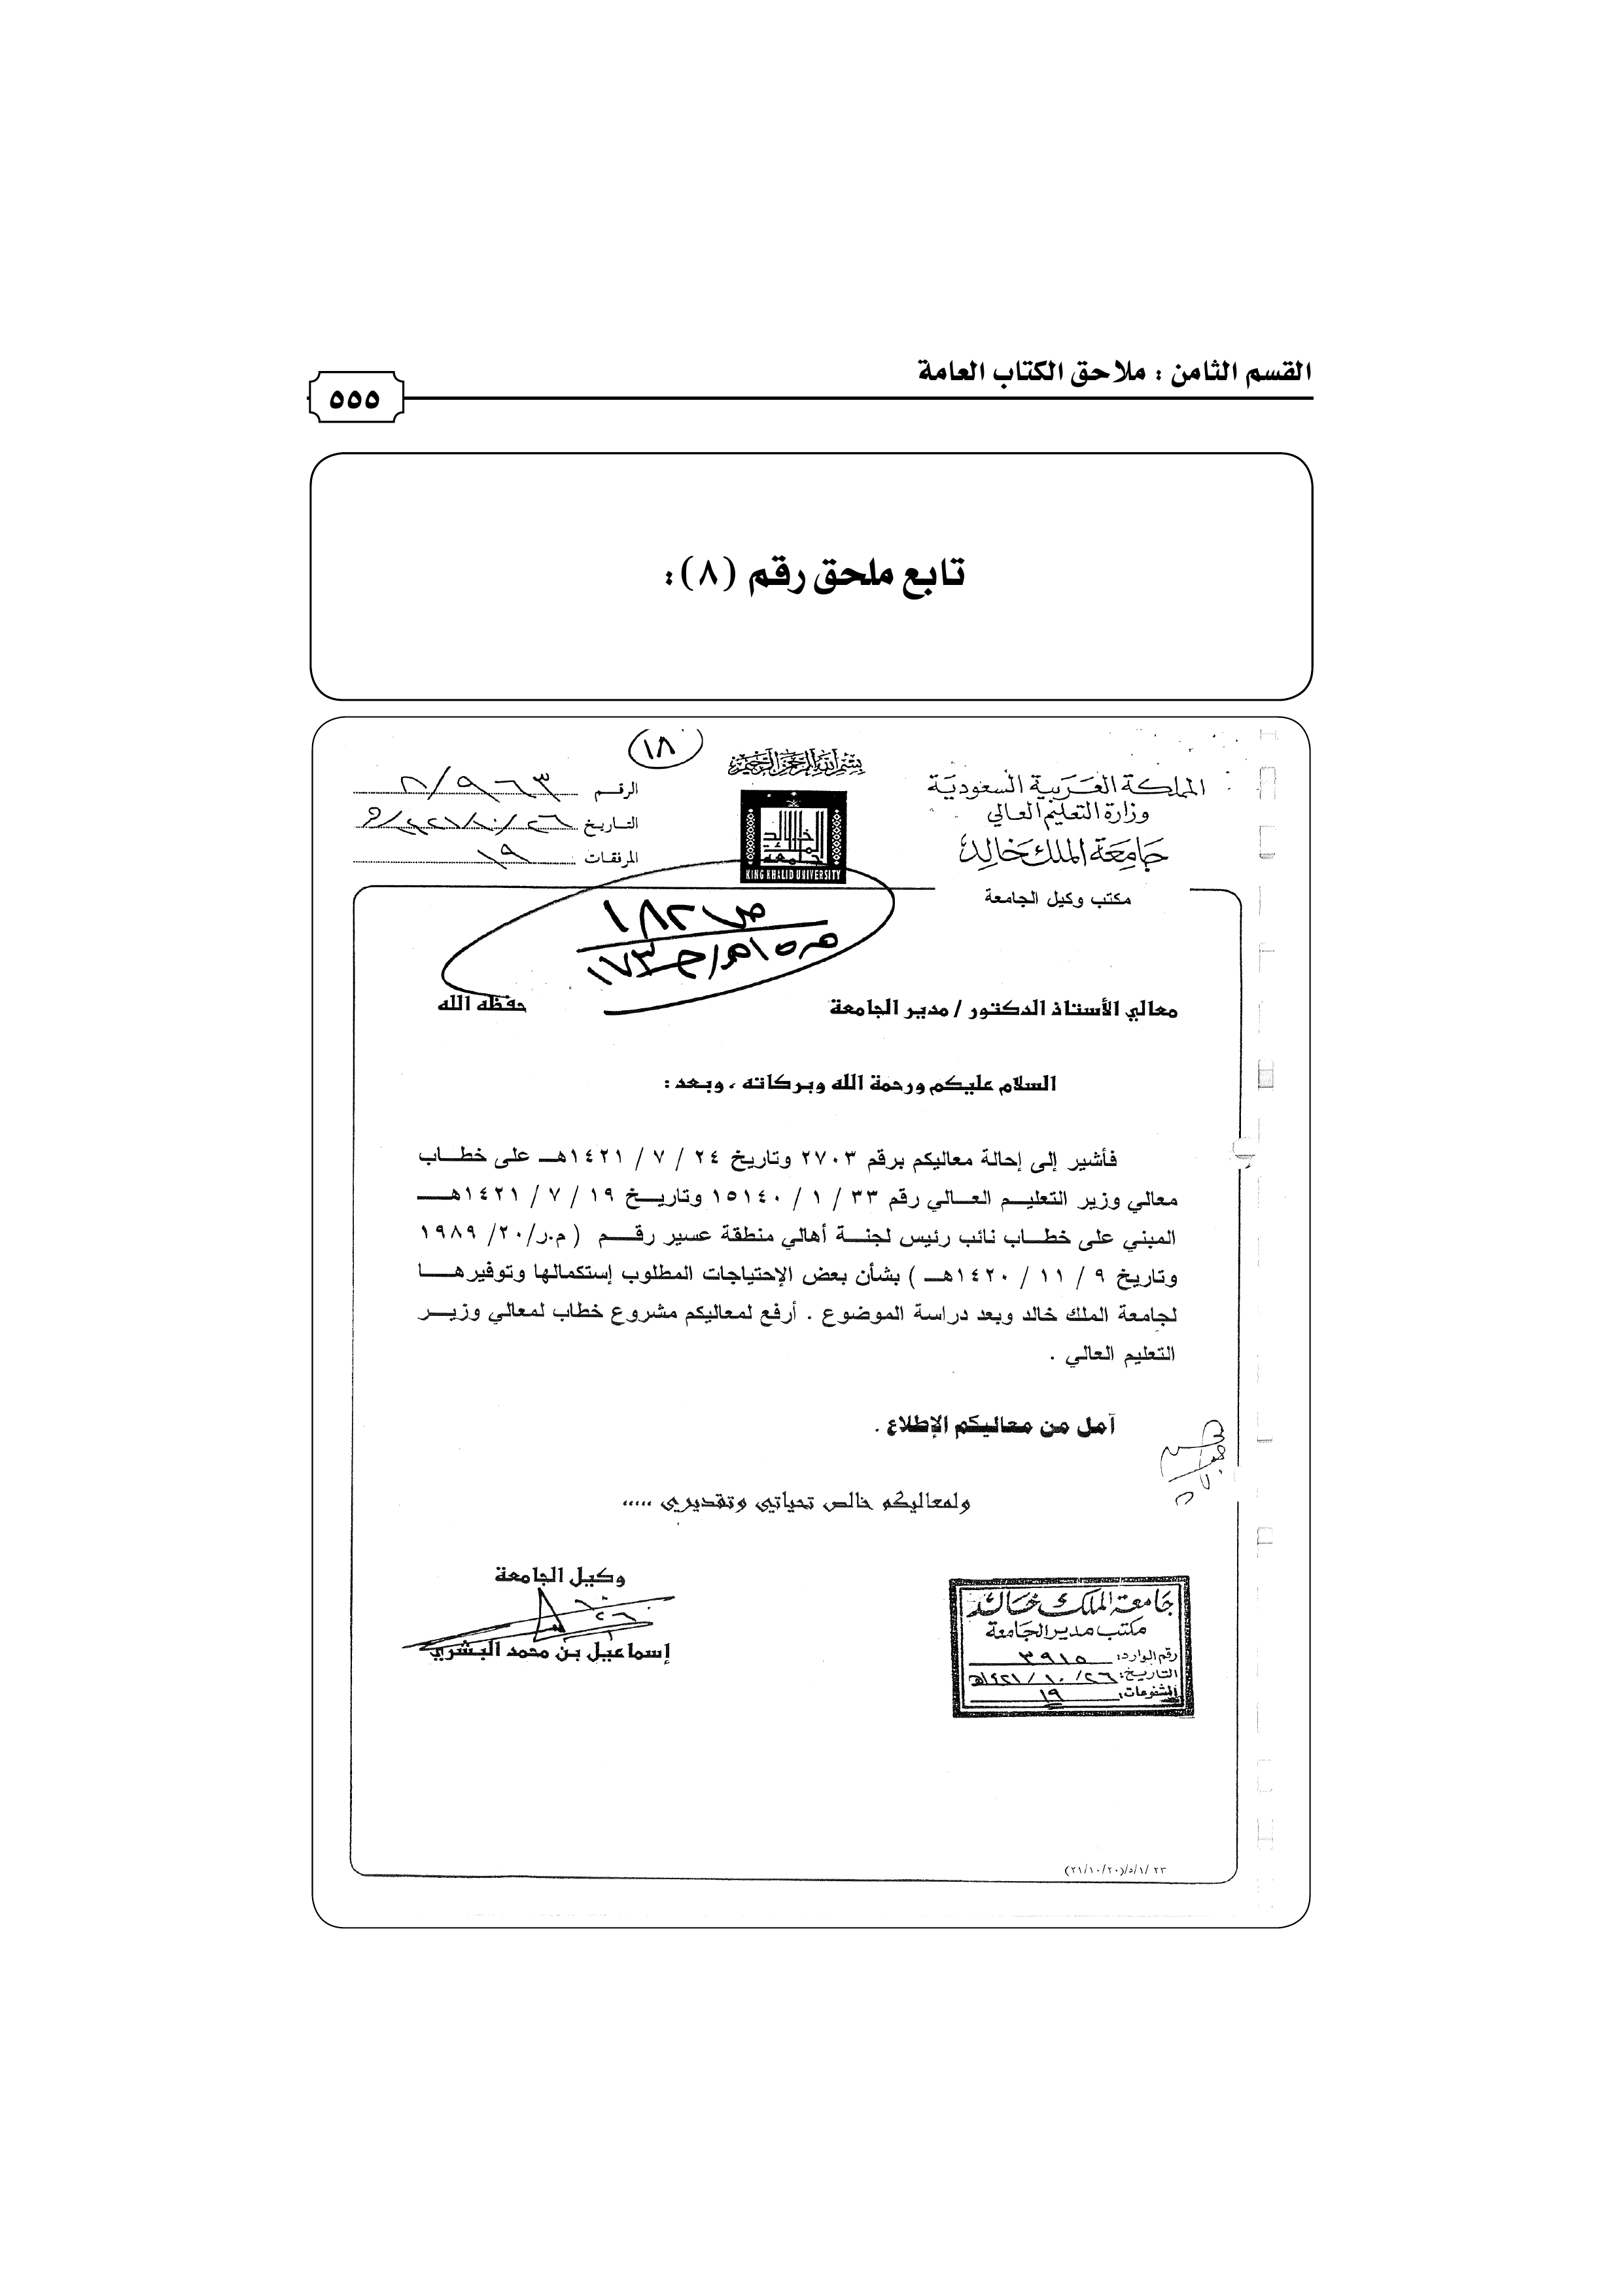 القسم الثامن : ملاحق الكتاب العامة
٥٥٥
تابع ملحق رقم (٨):
١٨
بسم الله الرحمن الرحيم
المملكة العربية السعودية
وزارة التعليم العالي
جامعة الملك خالد
مكتب وكيل الجامعة
KING KHALID UNIVERSITY
الرقم
التاريخ
المرفقات ١٩
معالي الأستاذ الدكتور / مدير الجامعة حفظه الله
السلام عليكم ورحمة الله وبركاته ، وبعد :
فأشير إلى إحالة معاليكم برقم ٢٧٠٣ وتاريخ ٢٤ / ٧ / ١٤٢١هـ على خطاب
معالي وزير التعليم العالي رقم ٣٣ / ١ / ١٥١٤٠ وتاريخ ١٩ / ٧ / ١٤٢١هـ
المبني على خطاب نائب رئيس لجنة أهالي منطقة عسير رقم ( م.ر/٢٠/ ١٩٨٩
وتاريخ ٩ / ١١ / ١٤٢٠هـ ) بشأن بعض الإحتياجات المطلوب إستكمالها وتوفيرها
لجامعة الملك خالد وبعد دراسة الموضوع . أرفع لمعاليكم مشروع خطاب لمعالي وزير
التعليم العالي .
آمل من معاليكم الإطلاع .
ولمعاليكم خالص تحياتي وتقديري .....
وكيل الجامعة
إسماعيل بن محمد البشري
جامعة الملك خالد
مكتب مدير الجامعة
رقم الوارد: ٣٩١٥
التاريخ: ٢٦/ ١٠ / ١٤٢١هـ
المشفوعات: ١٩
٢٣ /١/٥/(٢١/١٠/٢٠)